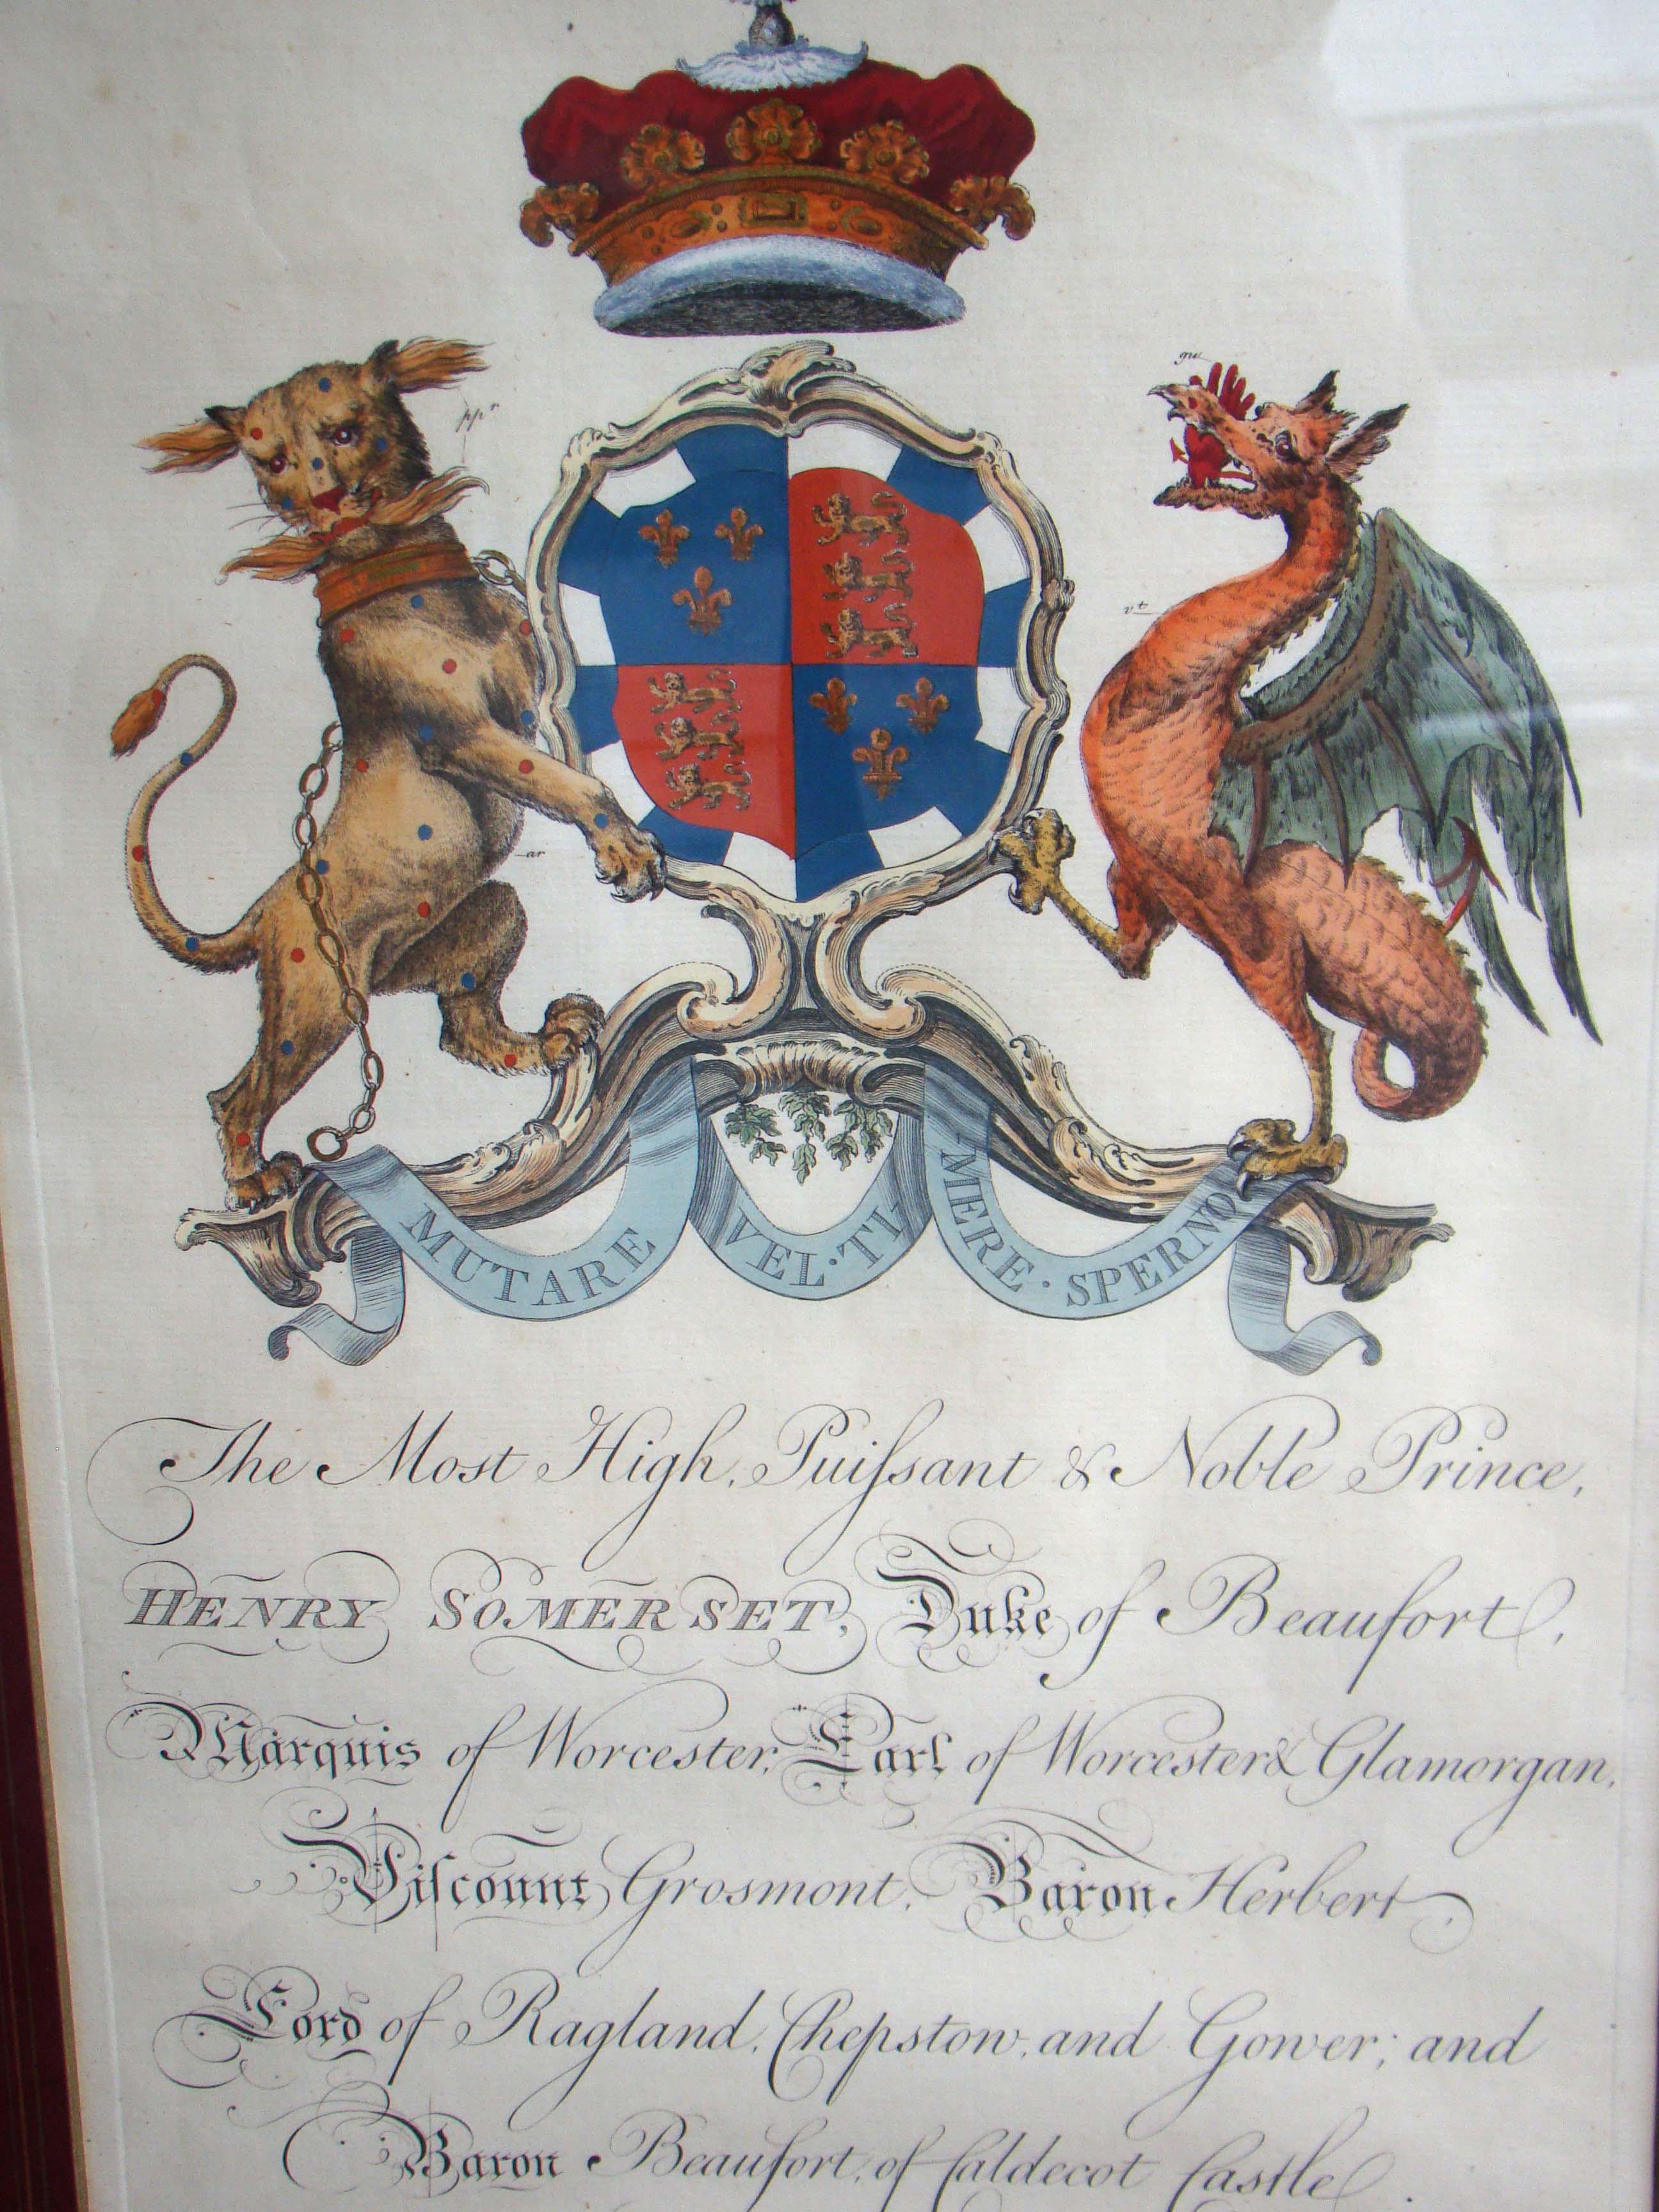 gu
ppr
vt
ar
MUTARE VEL·TIMERE·SPERNO
The Most High, Puiſsant & Noble Prince,
HENRY SOMERSET, Duke of Beaufort,
Marquis of Worcester, Earl of Worcester & Glamorgan,
Viſcount Grosmont, Baron Herbert,
Lord of Ragland, Chepstow, and Gower; and
Baron Beaufort, of Caldecot Castle.